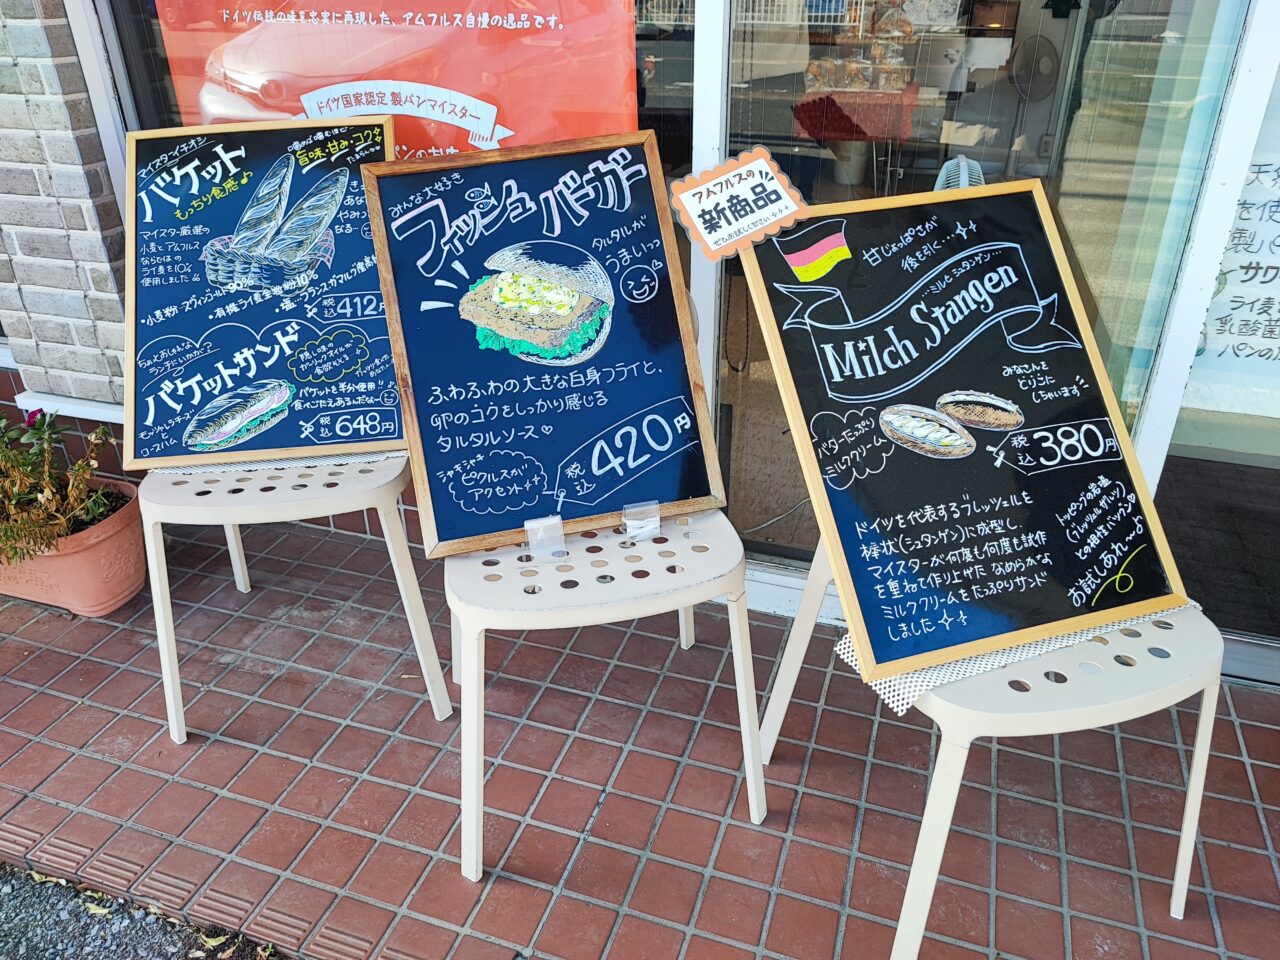 ドイツ伝統の味を忠実に再現した、アムフルス自慢の逸品です。
ドイツ国家認定 製パンマイスター
マイスターイチオシ
バゲット
もっちり食感♪
旨味・甘み・コク
マイスター厳選の
小麦とアムフルス
ならではの
ライ麦を10%
使用しました
・有機ライ麦全粒粉10%
税込412円
ランチにいかが?
バゲットサンド
隠し味の
ガーリックオイルが
食欲そそる
バゲットを半分使用!!
食べごたえあるんだな〜
モッツァレラチーズ
と
ロースハム
税込648円
みんな大好き
フィッシュバーガー
タルタルが
うましいっっ
ふわふわの大きな白身フライと、
卵のコクをしっかり感じる
タルタルソース♡
シャキシャキ
ピクルスが
アクセント
税込420円
アムフルスの
新商品
ぜひお試しください
甘じょっぱさが
後を引く…
…ミルヒシュタンゲン…
Milch Stangen
みなさんを
とりこに
しちゃいます
バターたっぷり
ミルククリーム
税込380円
ドイツを代表するブレッツェルを
棒状(シュタンゲン)に成型し、
マイスターが何度も何度も試作
を重ねて作り上げた なめらかな
ミルククリームをたっぷりサンド
しました
トッピングの岩塩
(ブレッツェルザルツ)
との相性バツグン♡
お試しあれ〜♪